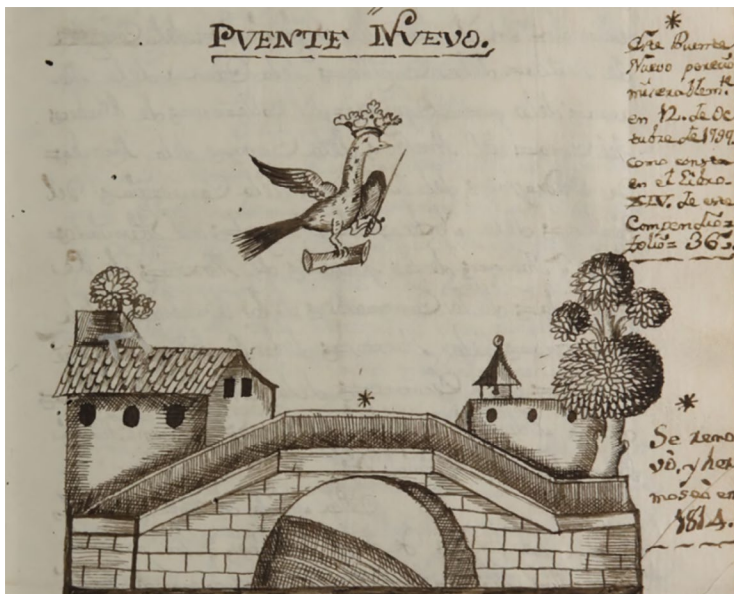 PVENTE NVEVO.
*
Este Puente
Nuevo pereciò
miserablem.te
en 12. de Oc
tubre de 1799.
como consta
en el Libro.
XLV. de este
Compendio=
folio= 36.
*
*
Se reno
vò, y her
moseò en
1814.